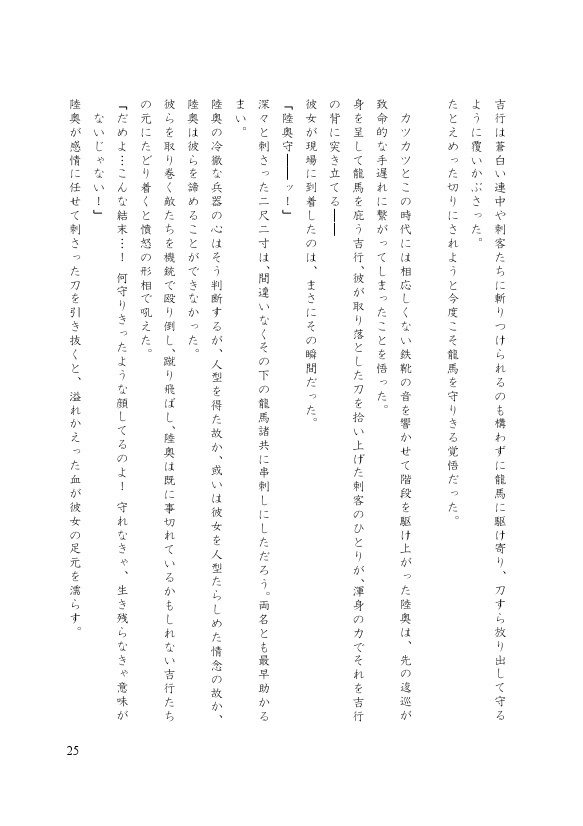 吉行は蒼白い連中や刺客たちに斬りつけられるのも構わずに龍馬に駆け寄り、刀すら放り出して守る
ように覆いかぶさった。
たとえめった切りにされようと今度こそ龍馬を守りきる覚悟だった。
カツカツとこの時代には相応しくない鉄靴の音を響かせて階段を駆け上がった陸奥は、先の逡巡が
致命的な手遅れに繋がってしまったことを悟った。
身を呈して龍馬を庇う吉行、彼が取り落とした刀を拾い上げた刺客のひとりが、渾身の力でそれを吉行
の背に突き立てる――
彼女が現場に到着したのは、まさにその瞬間だった。
『陸奥守――ッ！』
深々と刺さった二尺二寸は、間違いなくその下の龍馬諸共に串刺しにしただろう。両名とも最早助かる
まい。
陸奥の冷徹な兵器の心はそう判断するが、人型を得た故か、或いは彼女を人型たらしめた情念の故か、
陸奥は彼らを諦めることができなかった。
彼らを取り巻く敵たちを機銃で殴り倒し、蹴り飛ばし、陸奥は既に事切れているかもしれない吉行たち
の元にたどり着くと憤怒の形相で吼えた。
『だめよ…こんな結末…！　何守りきったような顔してるのよ！　守れなきゃ、生き残らなきゃ意味が
ないじゃない！』
陸奥が感情に任せて刺さった刀を引き抜くと、溢れかえった血が彼女の足元を濡らす。
25